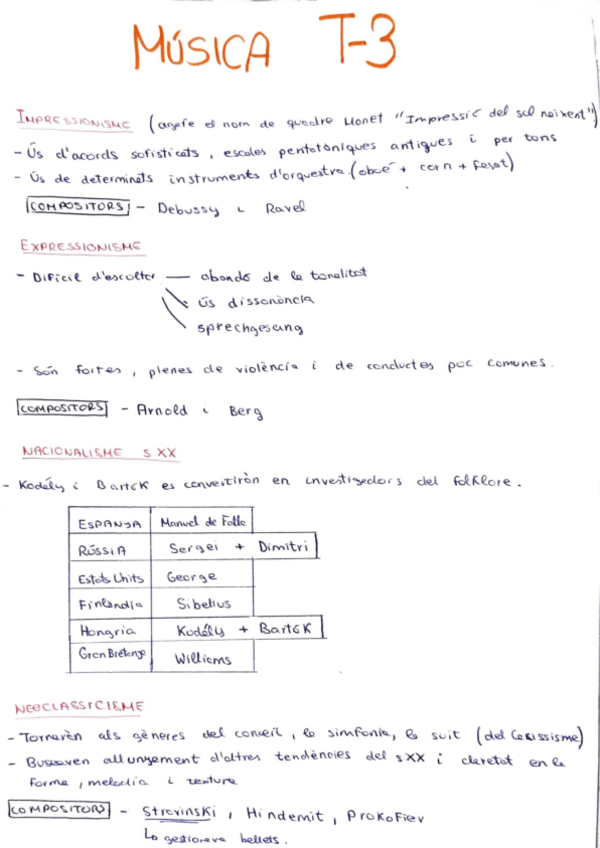 MÚSICA T-3
IMPRESSIONISME (agafe el nom de quadre Monet "Impressió del sol naixent")
- Ús d'acords sofisticats, escales pentatòniques antigues i per tons
- Ús de determinats instruments d'orquestra. (oboé + corn + fagot)
COMPOSITORS - Debussy i Ravel
EXPRESSIONISME
- Difícil d'escoltar — abandó de la tonalitat
ús dissonància
sprechgesang
- Són fortes, plenes de violència i de conductes poc comunes.
COMPOSITORS - Arnold i Berg
NACIONALISME s XX
- Kodály i Bartók es convertiràn en investigadors del folklore.
ESPANYA Manuel de Falla
RÚSSIA Sergei + Dimitri
Estats Units George
Finlandia Sibelius
Hongria Kodály + Bartók
Gran Bretanya Williems
NEOCLASSICISME
- Tornaren als gèneres del concert, la simfonia, la suit (del Classissisme)
- Buscaven allunyament d'altres tendències del sXX i claretat en la
forma, melodia i textura
COMPOSITORS - Stravinski, Hindemit, Prokofiev
Lo gestionava ballets.